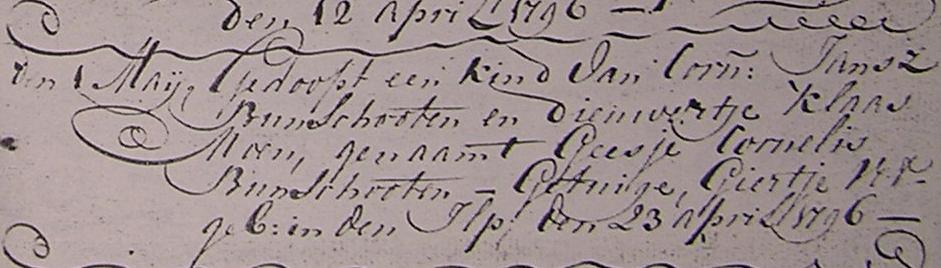 den 12 april 1796 —
den 1 Maij, Gedoopt een kind Van Corn: Jansz
Bunschooten en Dieuwertje Klaas
Moen, genaamt Geesje Cornelis
Bunschooten — Getuige, Giertje
geb: in den Ilp, den 23 april 1796 —